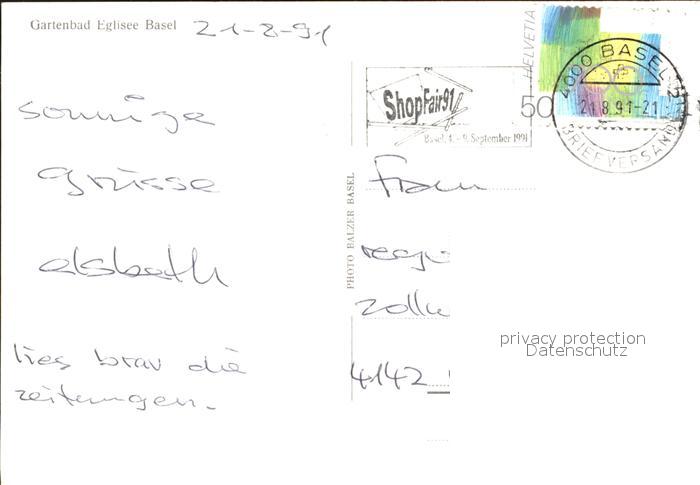 Gartenbad Eglisee Basel 21-8-91
sonnige
grüsse
elsbeth
lies brav die
zeitungen.
PHOTO BALZER BASEL
ShopFair91
Basel, 4. - 9. September 1991
HELVETIA
50
4000 BASEL 2
21.8.91-21
BRIEFVERSAND
Frau
4142
privacy protection
Datenschutz